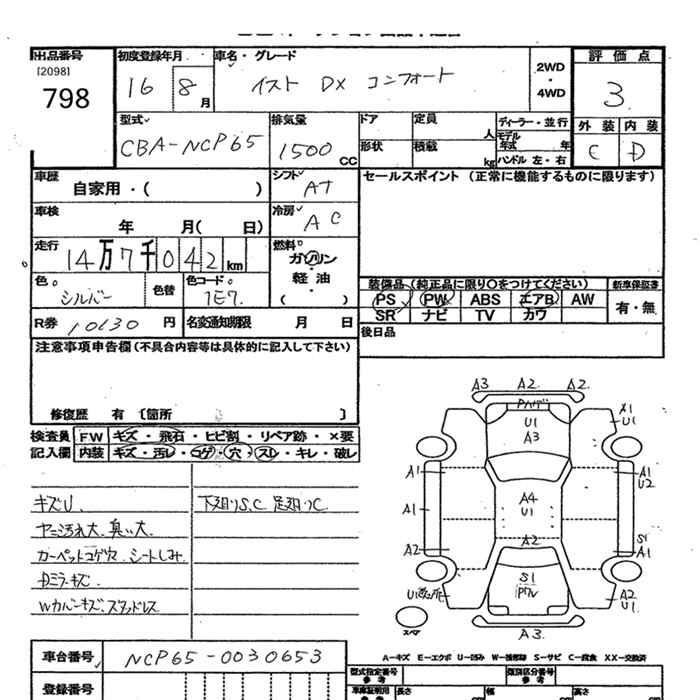 出品番号 初度登録年月 車名・グレード 評価点
[2098]
798 16 8月 イスト DX コンフォート 2WD・4WD 3
型式 排気量 ドア 定員 人 ディーラー・並行 外装 内装
CBA-NCP65 1500cc 形状 積載 kg モデル年式 年 ハンドル 左・右 C D
車歴 自家用・( ) シフト AT セールスポイント (正常に機能するものに限ります)
車検 年 月( 日) 冷房 AC
走行 14万7千042km 燃料 ガソリン・軽油・( )
色 シルバー 色替 色コード 1E7 装備品 (純正品に限り○をつけてください) 新車保証書
PS PW ABS エアB AW 有・無
SR ナビ TV カワ
R券 10130円 名変通知期限 月 日 後日品
注意事項申告欄 (不具合内容等は具体的に記入して下さい)
修復歴 有 [箇所 ]
検査員 FW キズ・飛石・ヒビ割・リペア跡・×要
記入欄 内装 キズ・汚レ・コゲ・穴・スレ・キレ・破レ
キズU. 下廻りS,C 足廻りC
ヤニ汚れ大. 臭い大.
カーペットコゲ穴 シートしみ.
Dミラーキズ.
Wカバーキズ.スタッドレス
A3 A2 A2
U1
A3
X1
U1
A1 A1
U2
A1 A4
U1
A2 A2 S1
A1
S1
U1 A2
U1
スペア A3
A-キズ E-エクボ U-凹み W-補修跡 S-サビ C-腐食 XX-交換済
車台番号 NCP65-0030653
型式指定番号 参考 類別区分番号 参考
登録番号 車庫証明用 長さ 幅 高さ